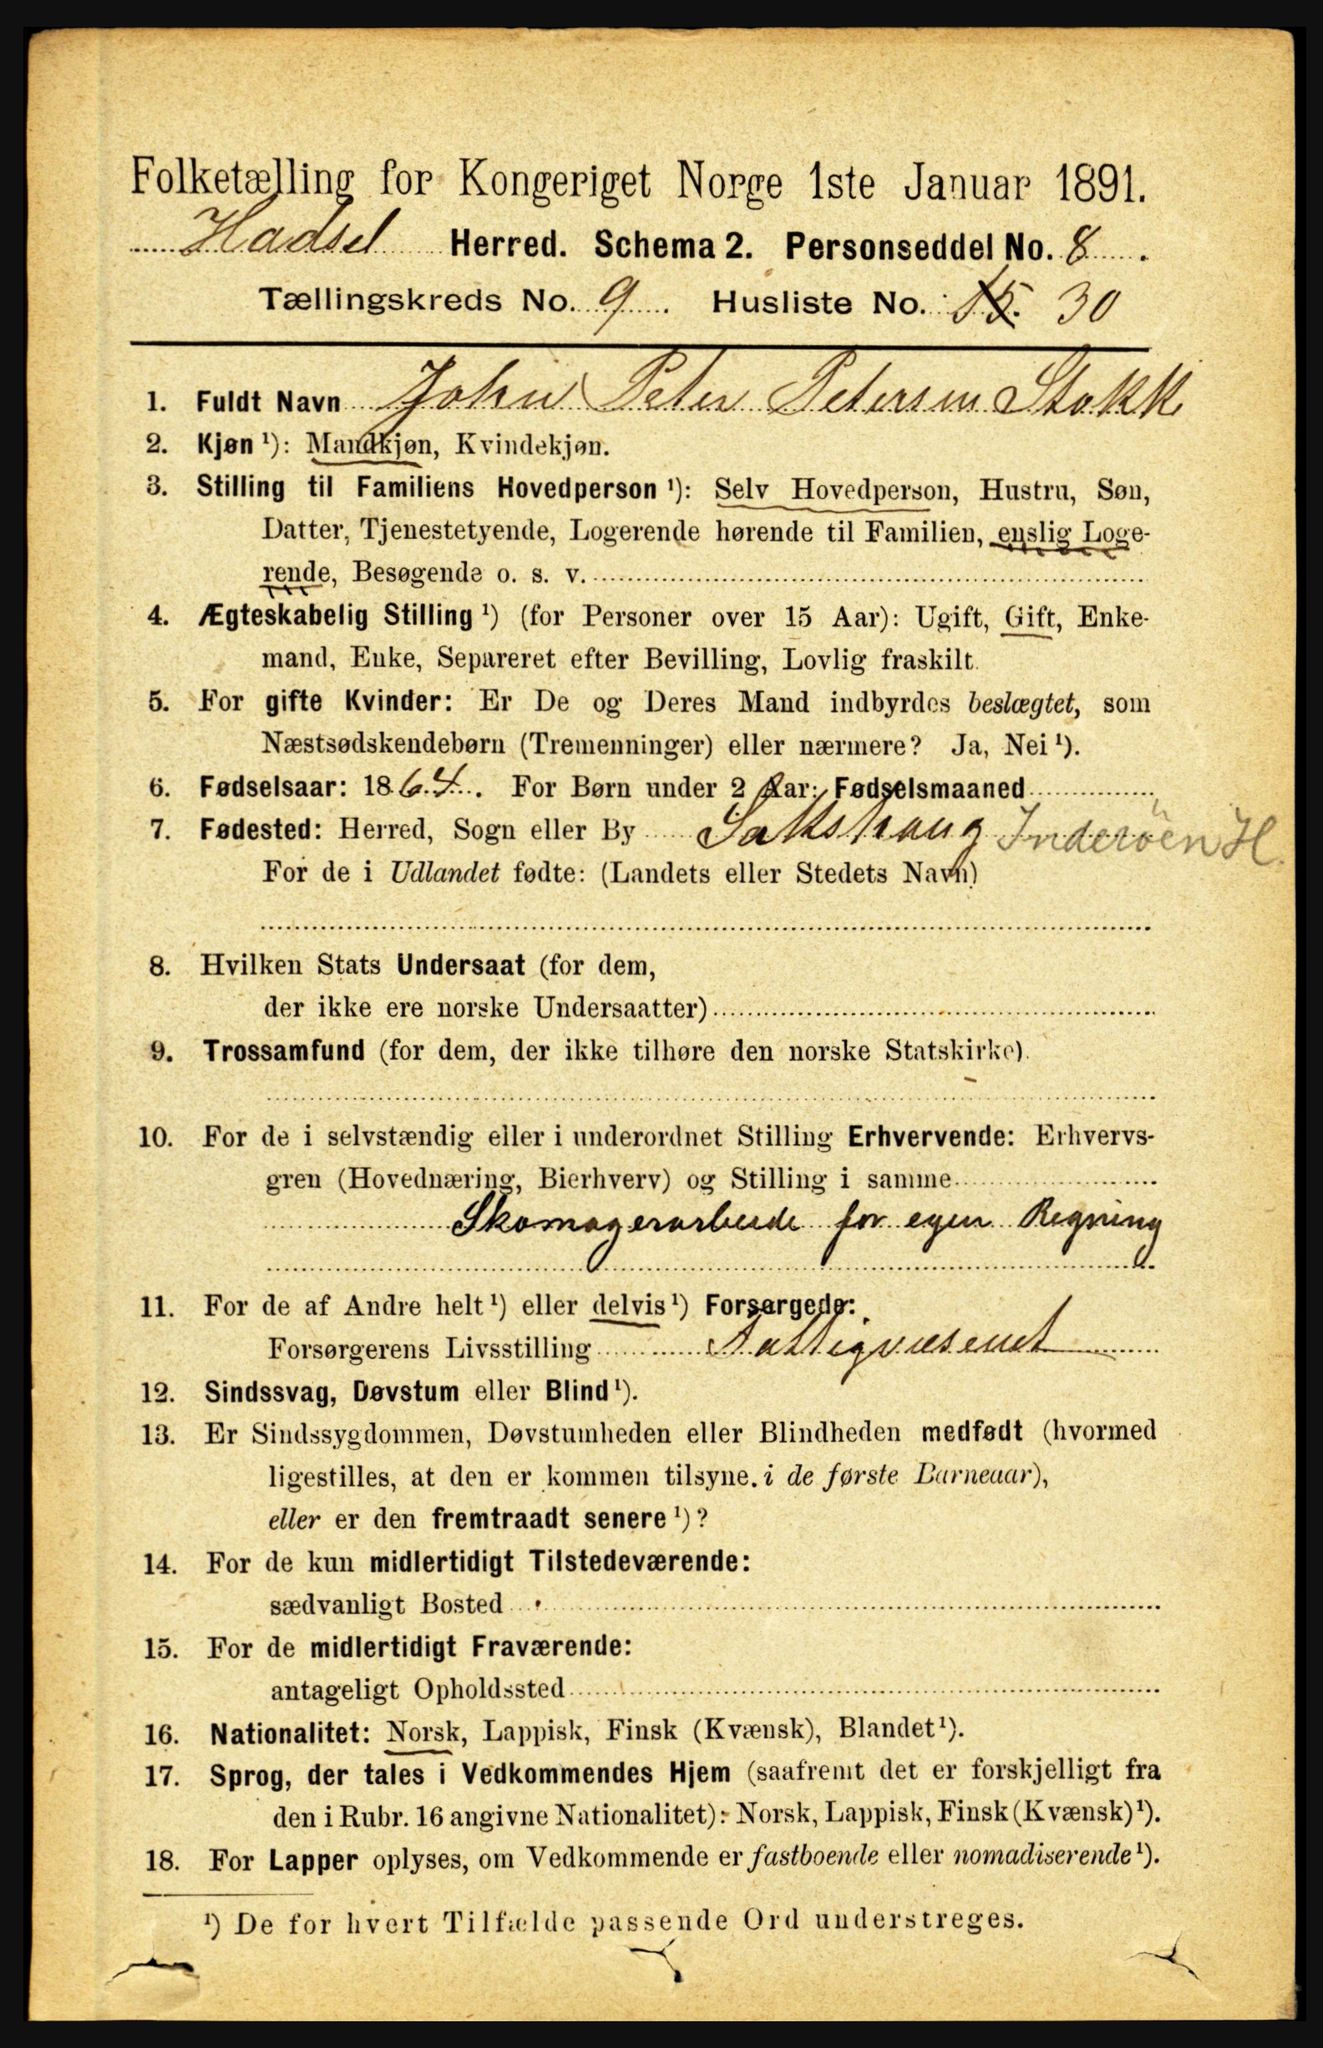 Folketælling for Kongeriget Norge 1ste Januar 1891.
Hadsel Herred. Schema 2. Personseddel No. 8.
Tællingskreds No. 9. Husliste No. 15. 30
1. Fuldt Navn John Peter Petersen Stokk
2. Kjøn ¹): Mandkjøn, Kvindekjøn.
3. Stilling til Familiens Hovedperson ¹): Selv Hovedperson, Hustru, Søn,
Datter, Tjenestetyende, Logerende hørende til Familien, enslig Loge-
rende, Besøgende o. s. v.
4. Ægteskabelig Stilling ¹) (for Personer over 15 Aar): Ugift, Gift, Enke-
mand, Enke, Separeret efter Bevilling, Lovlig fraskilt.
5. For gifte Kvinder: Er De og Deres Mand indbyrdes beslægtet, som
Næstsødskendebørn (Tremenninger) eller nærmere? Ja, Nei ¹).
6. Fødselsaar: 1864. For Børn under 2 Aar: Fødselsmaaned
7. Fødested: Herred, Sogn eller By Sakshaug Inderöen H.
For de i Udlandet fødte: (Landets eller Stedets Navn)
8. Hvilken Stats Undersaat (for dem,
der ikke ere norske Undersaatter)
9. Trossamfund (for dem, der ikke tilhøre den norske Statskirke).
10. For de i selvstændig eller i underordnet Stilling Erhvervende: Erhvervs-
gren (Hovednæring, Bierhverv) og Stilling i samme
Skomagerarbeide for egen Regning
11. For de af Andre helt ¹) eller delvis ¹) Forsørgede:
Forsørgerens Livsstilling Fattigvæsenet
12. Sindssvag, Døvstum eller Blind ¹).
13. Er Sindssygdommen, Døvstumheden eller Blindheden medfødt (hvormed
ligestilles, at den er kommen tilsyne i de første Barneaar),
eller er den fremtraadt senere ¹)?
14. For de kun midlertidigt Tilstedeværende:
sædvanligt Bosted
15. For de midlertidigt Fraværende:
antageligt Opholdssted
16. Nationalitet: Norsk, Lappisk, Finsk (Kvænsk), Blandet ¹).
17. Sprog, der tales i Vedkommendes Hjem (saafremt det er forskjelligt fra
den i Rubr. 16 angivne Nationalitet): Norsk, Lappisk, Finsk (Kvænsk) ¹).
18. For Lapper oplyses, om Vedkommende er fastboende eller nomadiserende ¹).
¹) De for hvert Tilfælde passende Ord understreges.